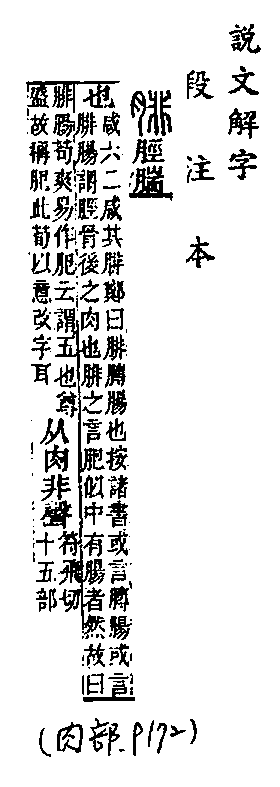 說文解字
段注本
腓 脛腨
也咸六二咸其腓鄭曰腓膊腸也按諸書或言膊腸或言
腓腸謂脛骨後之肉也腓之言肥似中有腸者然故曰
腓腸荀爽易作肥云謂五也尊
盛故稱肥此荀以意改字耳
从肉非聲
符飛切
十五部
(肉部.P172)